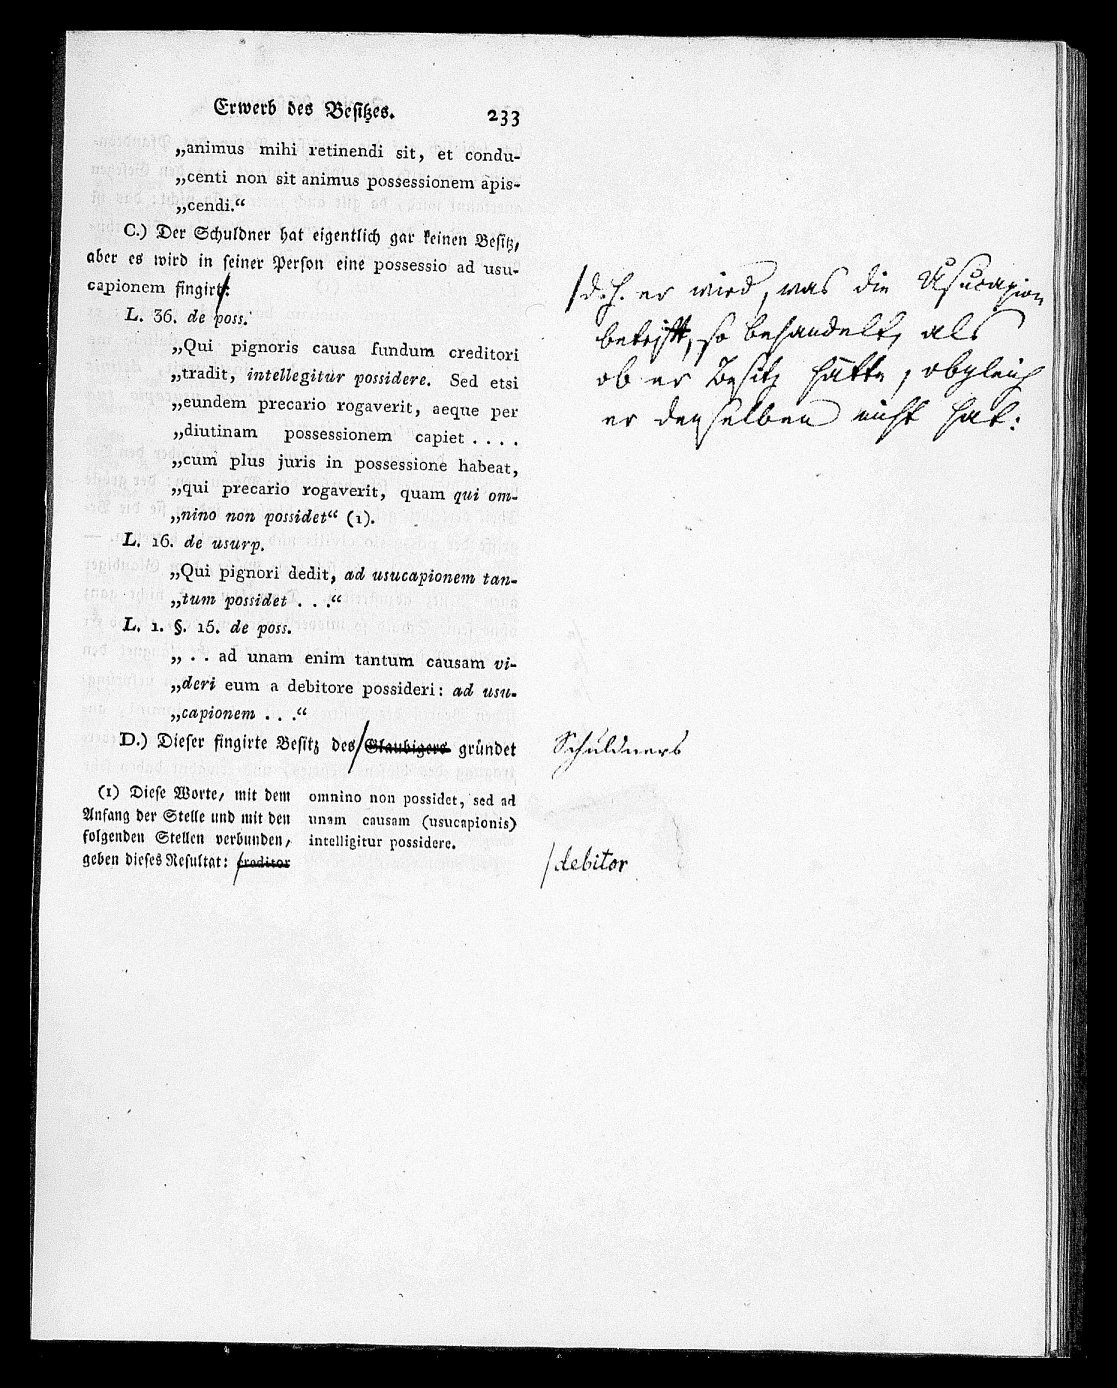 Erwerb des Besitzes. 233
„animus mihi retinendi sit, et condu-
„centi non sit animus possessionem apis-
„cendi.“
C.) Der Schuldner hat eigentlich gar keinen Besitz,
aber es wird in seiner Person eine possessio ad usu-
capionem fingirt:
L. 36. de poss.
„Qui pignoris causa fundum creditori
„tradit, intellegitur possidere. Sed etsi
„eundem precario rogaverit, aeque per
„diutinam possessionem capiet . . . .
„cum plus juris in possessione habeat,
„qui precario rogaverit, quam qui om-
„nino non possidet“ (1).
L. 16. de usurp.
„Qui pignori dedit, ad usucapionem tan-
„tum possidet . . .“
L. 1. §. 15. de poss.
„ . . ad unam enim tantum causam vi-
„deri eum a debitore possideri: ad usu-
„capionem . . .“
D.) Dieser fingirte Besitz des Glaubigers gründet
(1) Diese Worte, mit dem
Anfang der Stelle und mit den
folgenden Stellen verbunden,
geben dieses Resultat: creditor
omnino non possidet, sed ad
unam causam (usucapionis)
intelligitur possidere.
d. h. er wird, was die Usucapion
betrifft, so behandelt, als
ob er Besitz hätte, obgleich
er denselben nicht hat:
Schuldners
debitor